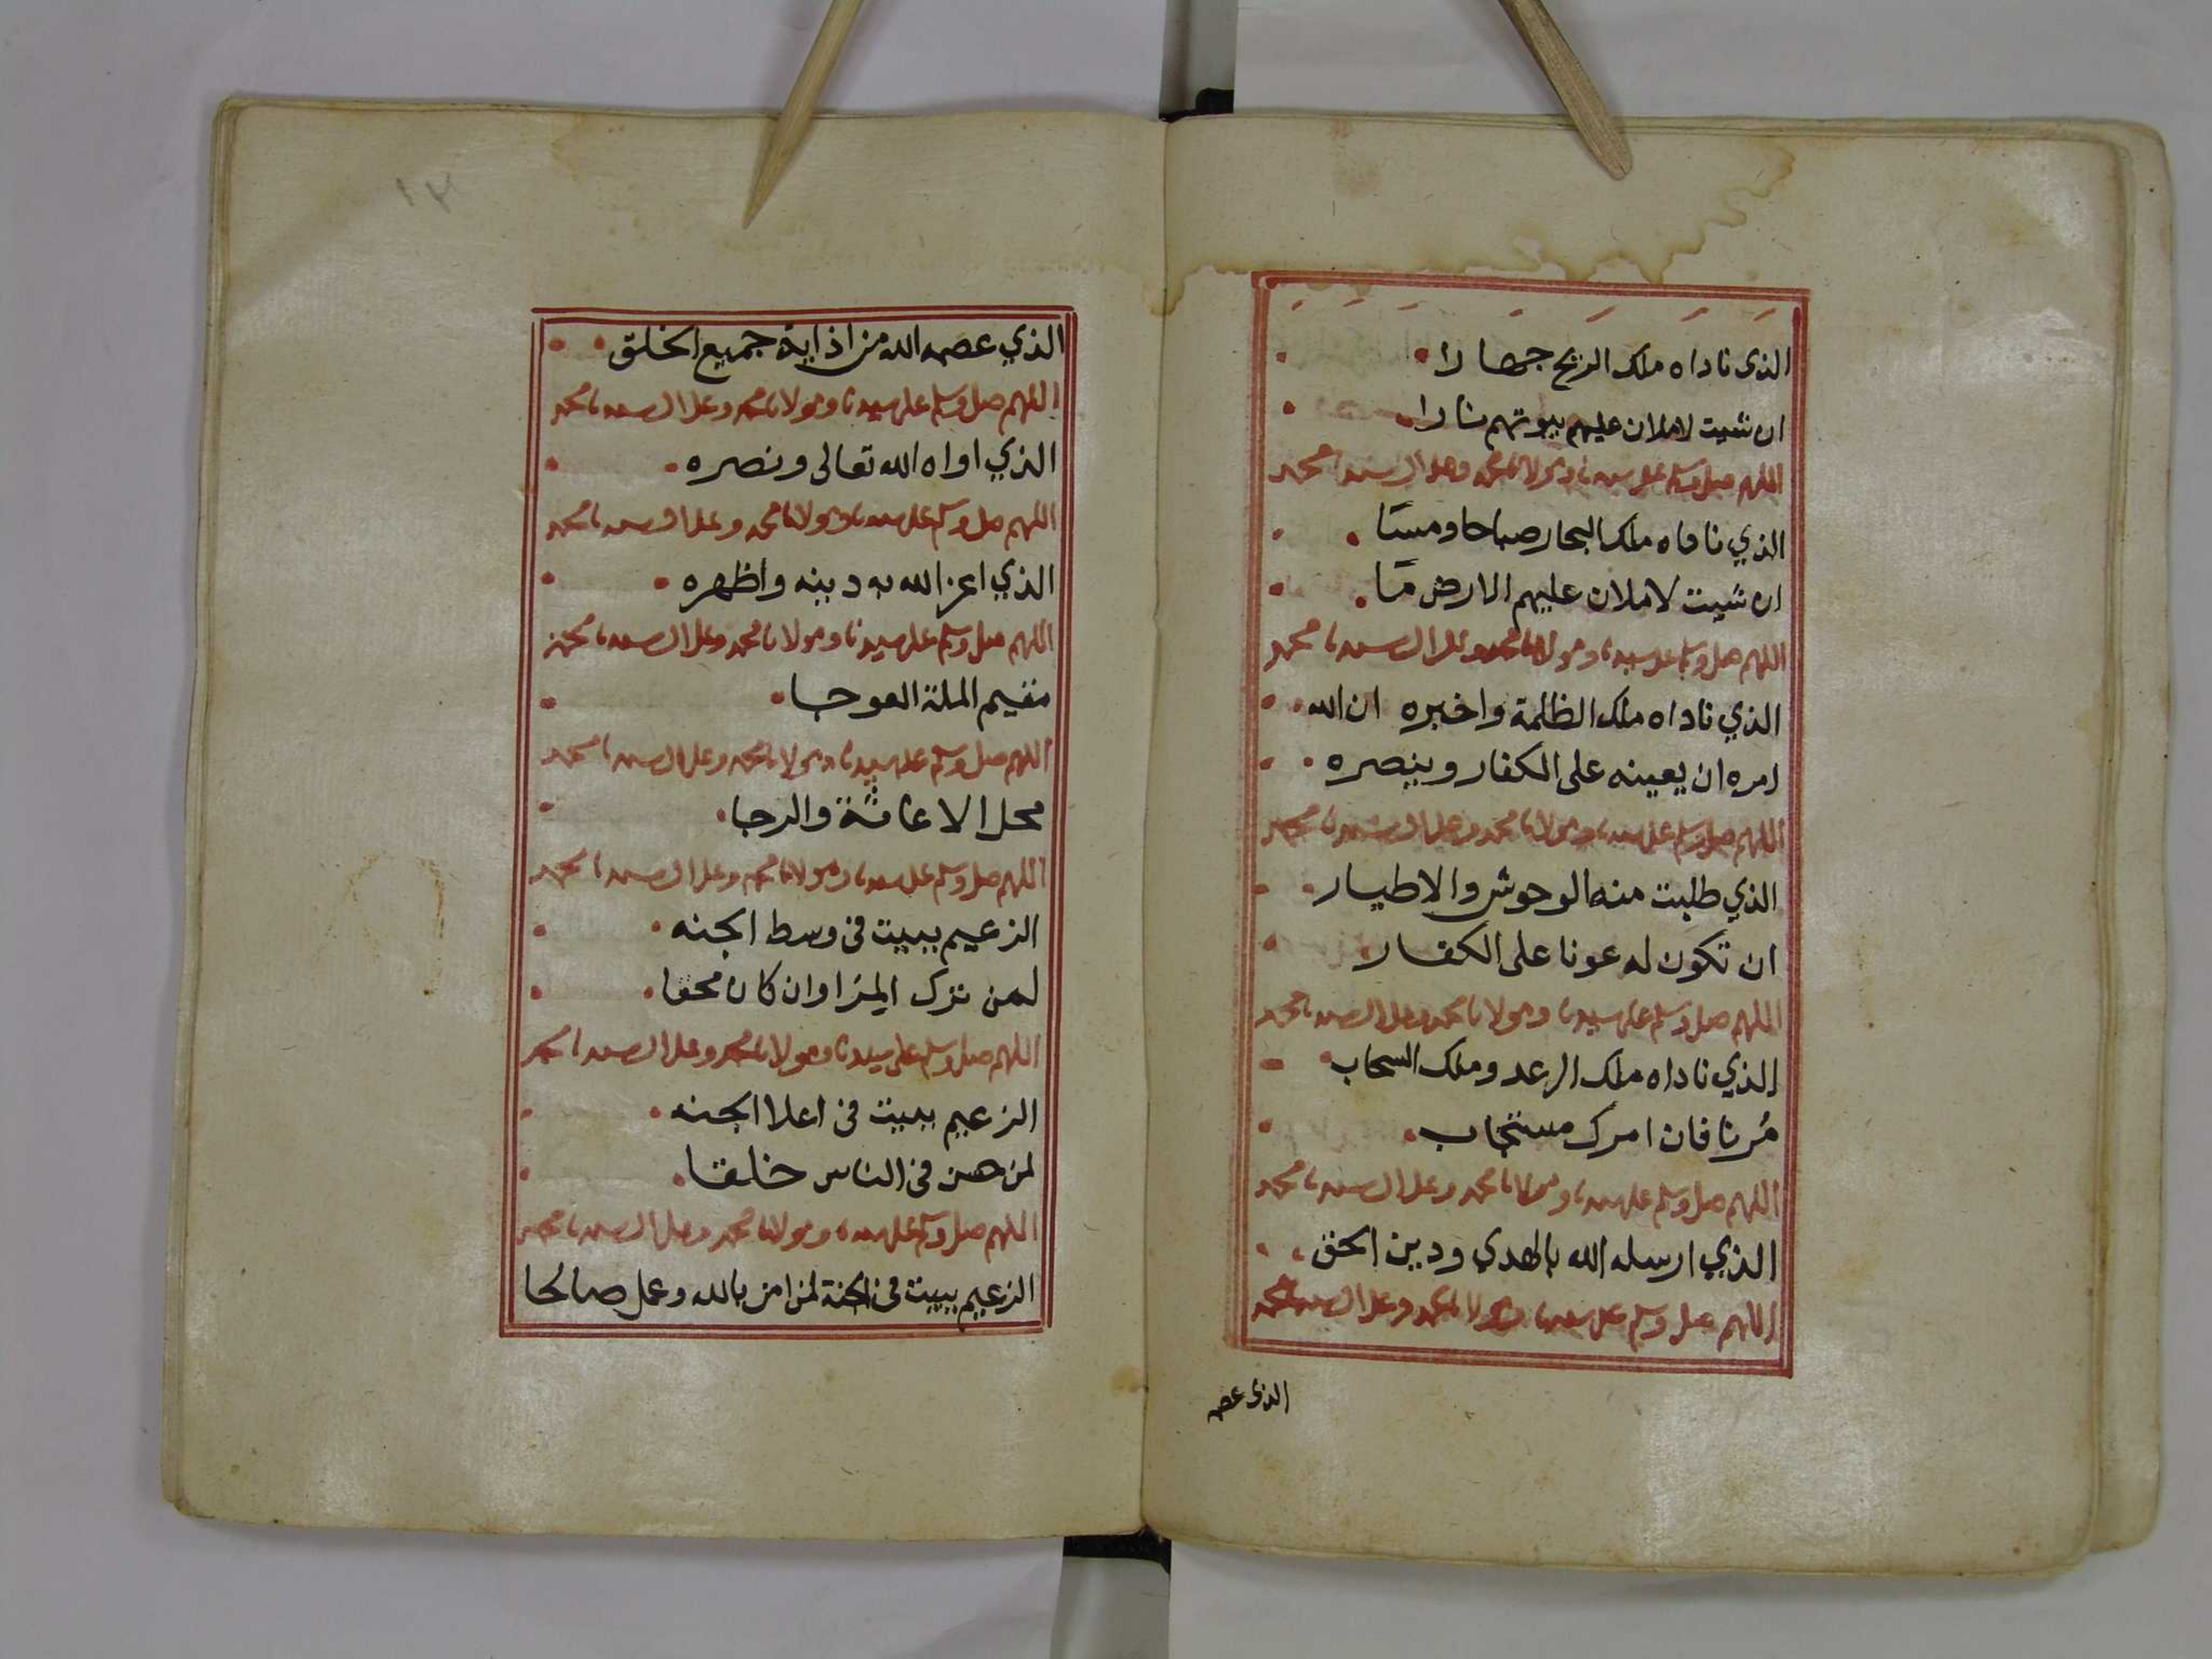 الذى ناداه ملك الريح جهارا
ان شيت لاملان عليهم بيوتهم نارا
اللهم صل وسلم على سيدنا ومولانا محمد وعلى ال سيدنا محمد
الذي ناداه ملك البحار صباحا ومسآ
ان شيت لاملان عليهم الارض مآ
اللهم صل وسلم على سيدنا ومولانا محمد وعلى ال سيدنا محمد
الذي ناداه ملك الظلمة واخبره ان الله
امره ان يعينه على الكفار وينصره
اللهم صل وسلم على سيدنا ومولانا محمد وعلى ال سيدنا محمد
الذي طلبت منه الوحوش والاطيار
ان تكون له عونا على الكفار
اللهم صل وسلم على سيدنا ومولانا محمد وعلى ال سيدنا محمد
الذي ناداه ملك الرعد وملك السحاب
مُرنا فان امرك مستجاب
اللهم صل وسلم على سيدنا ومولانا محمد وعلى ال سيدنا محمد
الذي ارسله الله بالهدي ودين الحق
اللهم صل وسلم على سيدنا ومولانا محمد وعلى ال سيدنا محمد
الذى عصمه
١٢
الذي عصمه الله من اذاية جميع الخلق
اللهم صل وسلم على سيدنا ومولانا محمد وعلى ال سيدنا محمد
الذي اواه الله تعالى ونصره
اللهم صل وسلم على سيدنا ومولانا محمد وعلى ال سيدنا محمد
الذي اعز الله به دينه واظهره
اللهم صل وسلم على سيدنا ومولانا محمد وعلى ال سيدنا محمد
مقيم الملة العوجا
اللهم صل وسلم على سيدنا ومولانا محمد وعلى ال سيدنا محمد
محل الاغاثة والرجا
اللهم صل وسلم على سيدنا ومولانا محمد وعلى ال سيدنا محمد
الزعيم ببيت فى وسط الجنه
لمن ترك المرا وان كان محقا
اللهم صل وسلم على سيدنا ومولانا محمد وعلى ال سيدنا محمد
الزعيم ببيت فى اعلا الجنه
لمن حسن فى الناس خلقا
اللهم صل وسلم على سيدنا ومولانا محمد وعلى ال سيدنا محمد
الزعيم ببيت فى الجنة لمن امن بالله وعمل صالحا